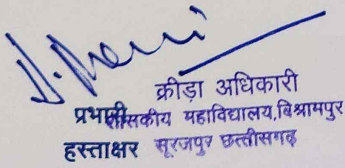 क्रीड़ा अधिकारी
प्रभारी शासकीय महाविद्यालय,विश्रामपुर
हस्ताक्षर सूरजपुर छत्तीसगढ़